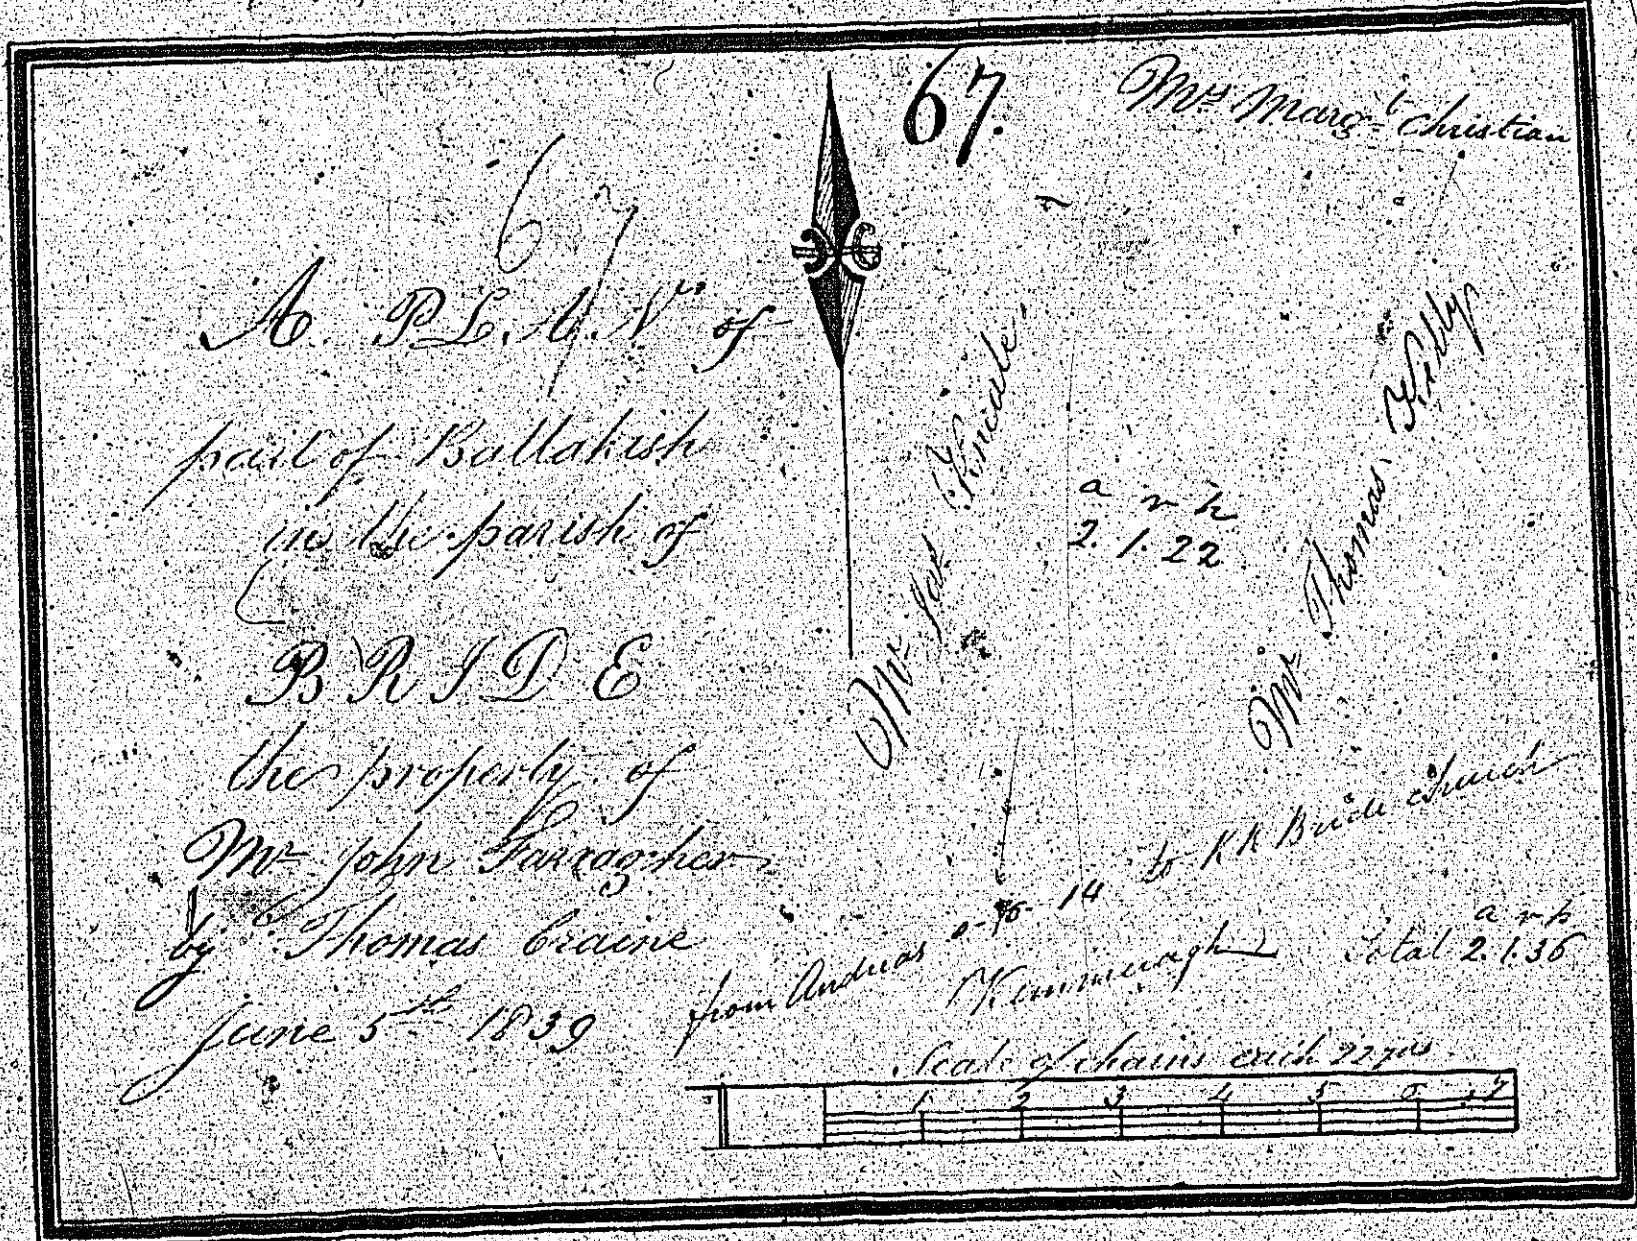 67.
67
A. P.L.A.N. of
part of Ballakish
in the parish of
BRIDE
the property of
Mr John Farragher
by Thomas Craine
June 5th 1839
Mrs Margt Christian
Mr Jas Kneale
a r p
2. 1. 22
Mr Thomas Kelly
from Andreas
14
to KK Bride Church
Kimmeragh
a r p
Total 2. 1. 36
Scale of chains each 22 yds
1 2 3 4 5 6 7